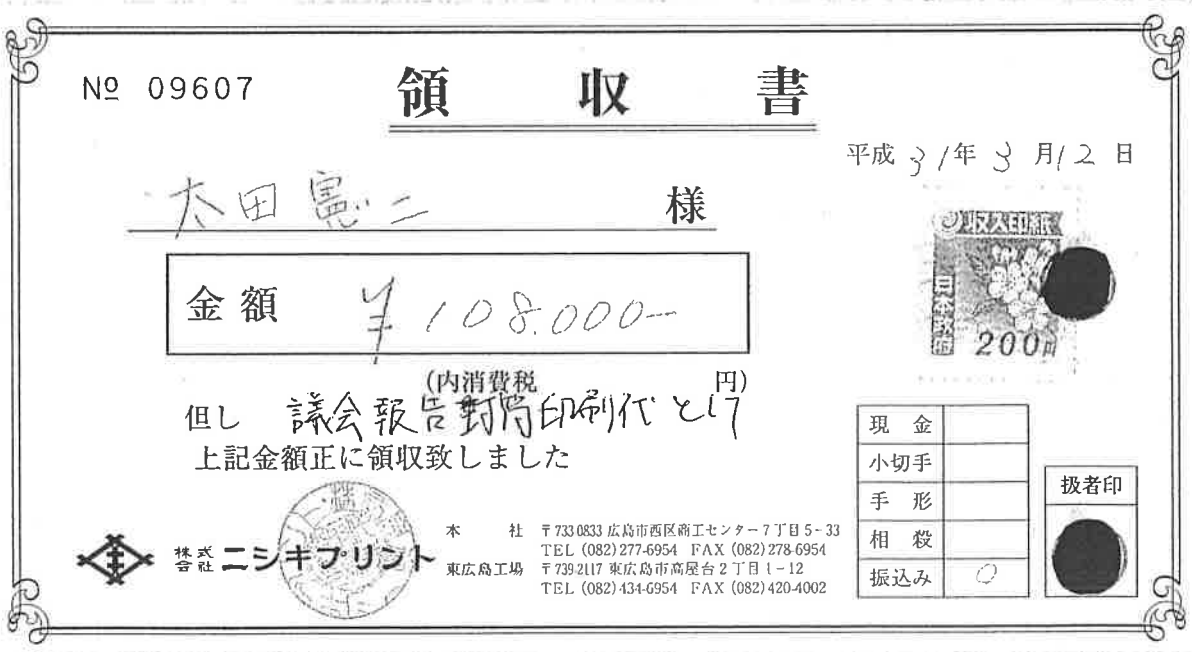 № 09607
領収書
平成31年3月12日
太田憲二 様
収入印紙
日本政府
200円
金額 ¥108.000-
(内消費税 円)
但し 議会報告封筒印刷代として
上記金額正に領収致しました
現金
小切手
手形
相殺
振込み ○
扱者印
株式会社ニシキプリント
本社 〒733-0833 広島市西区商工センター7丁目5-33
TEL (082)277-6954 FAX (082)278-6954
東広島工場 〒739-2117 東広島市高屋台2丁目1-12
TEL (082)434-6954 FAX (082)420-4002